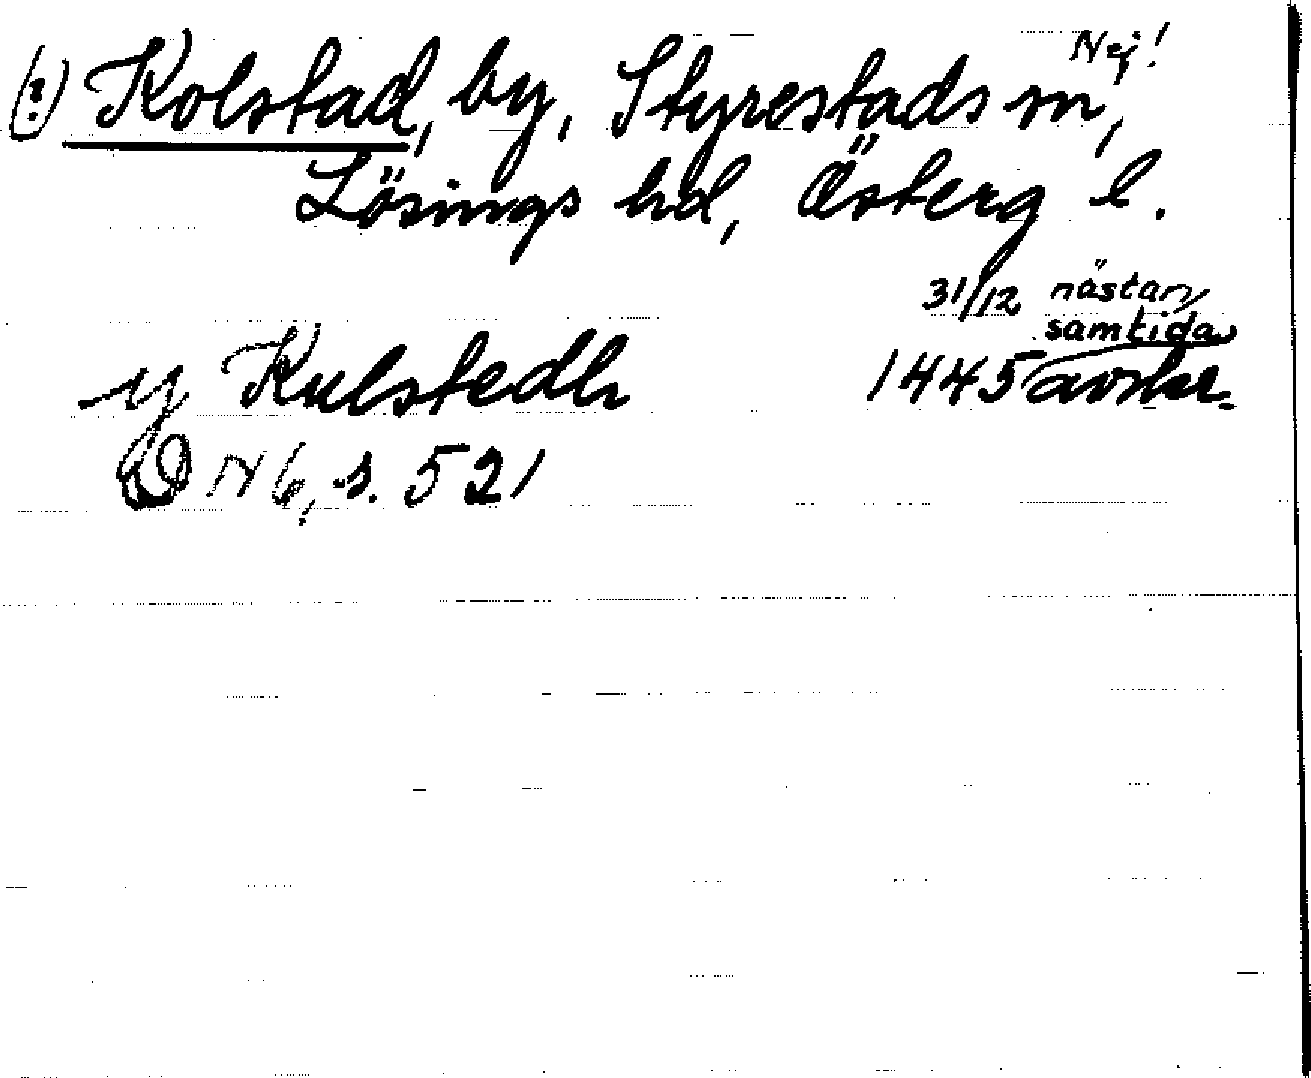 Nej!
(?) Kolstad, by, Styrestads sn,
Lösings hd, Österg l.
31/12 nästan
samtida
y Kulstedh 1445 avskr.
D N 6, s. 521